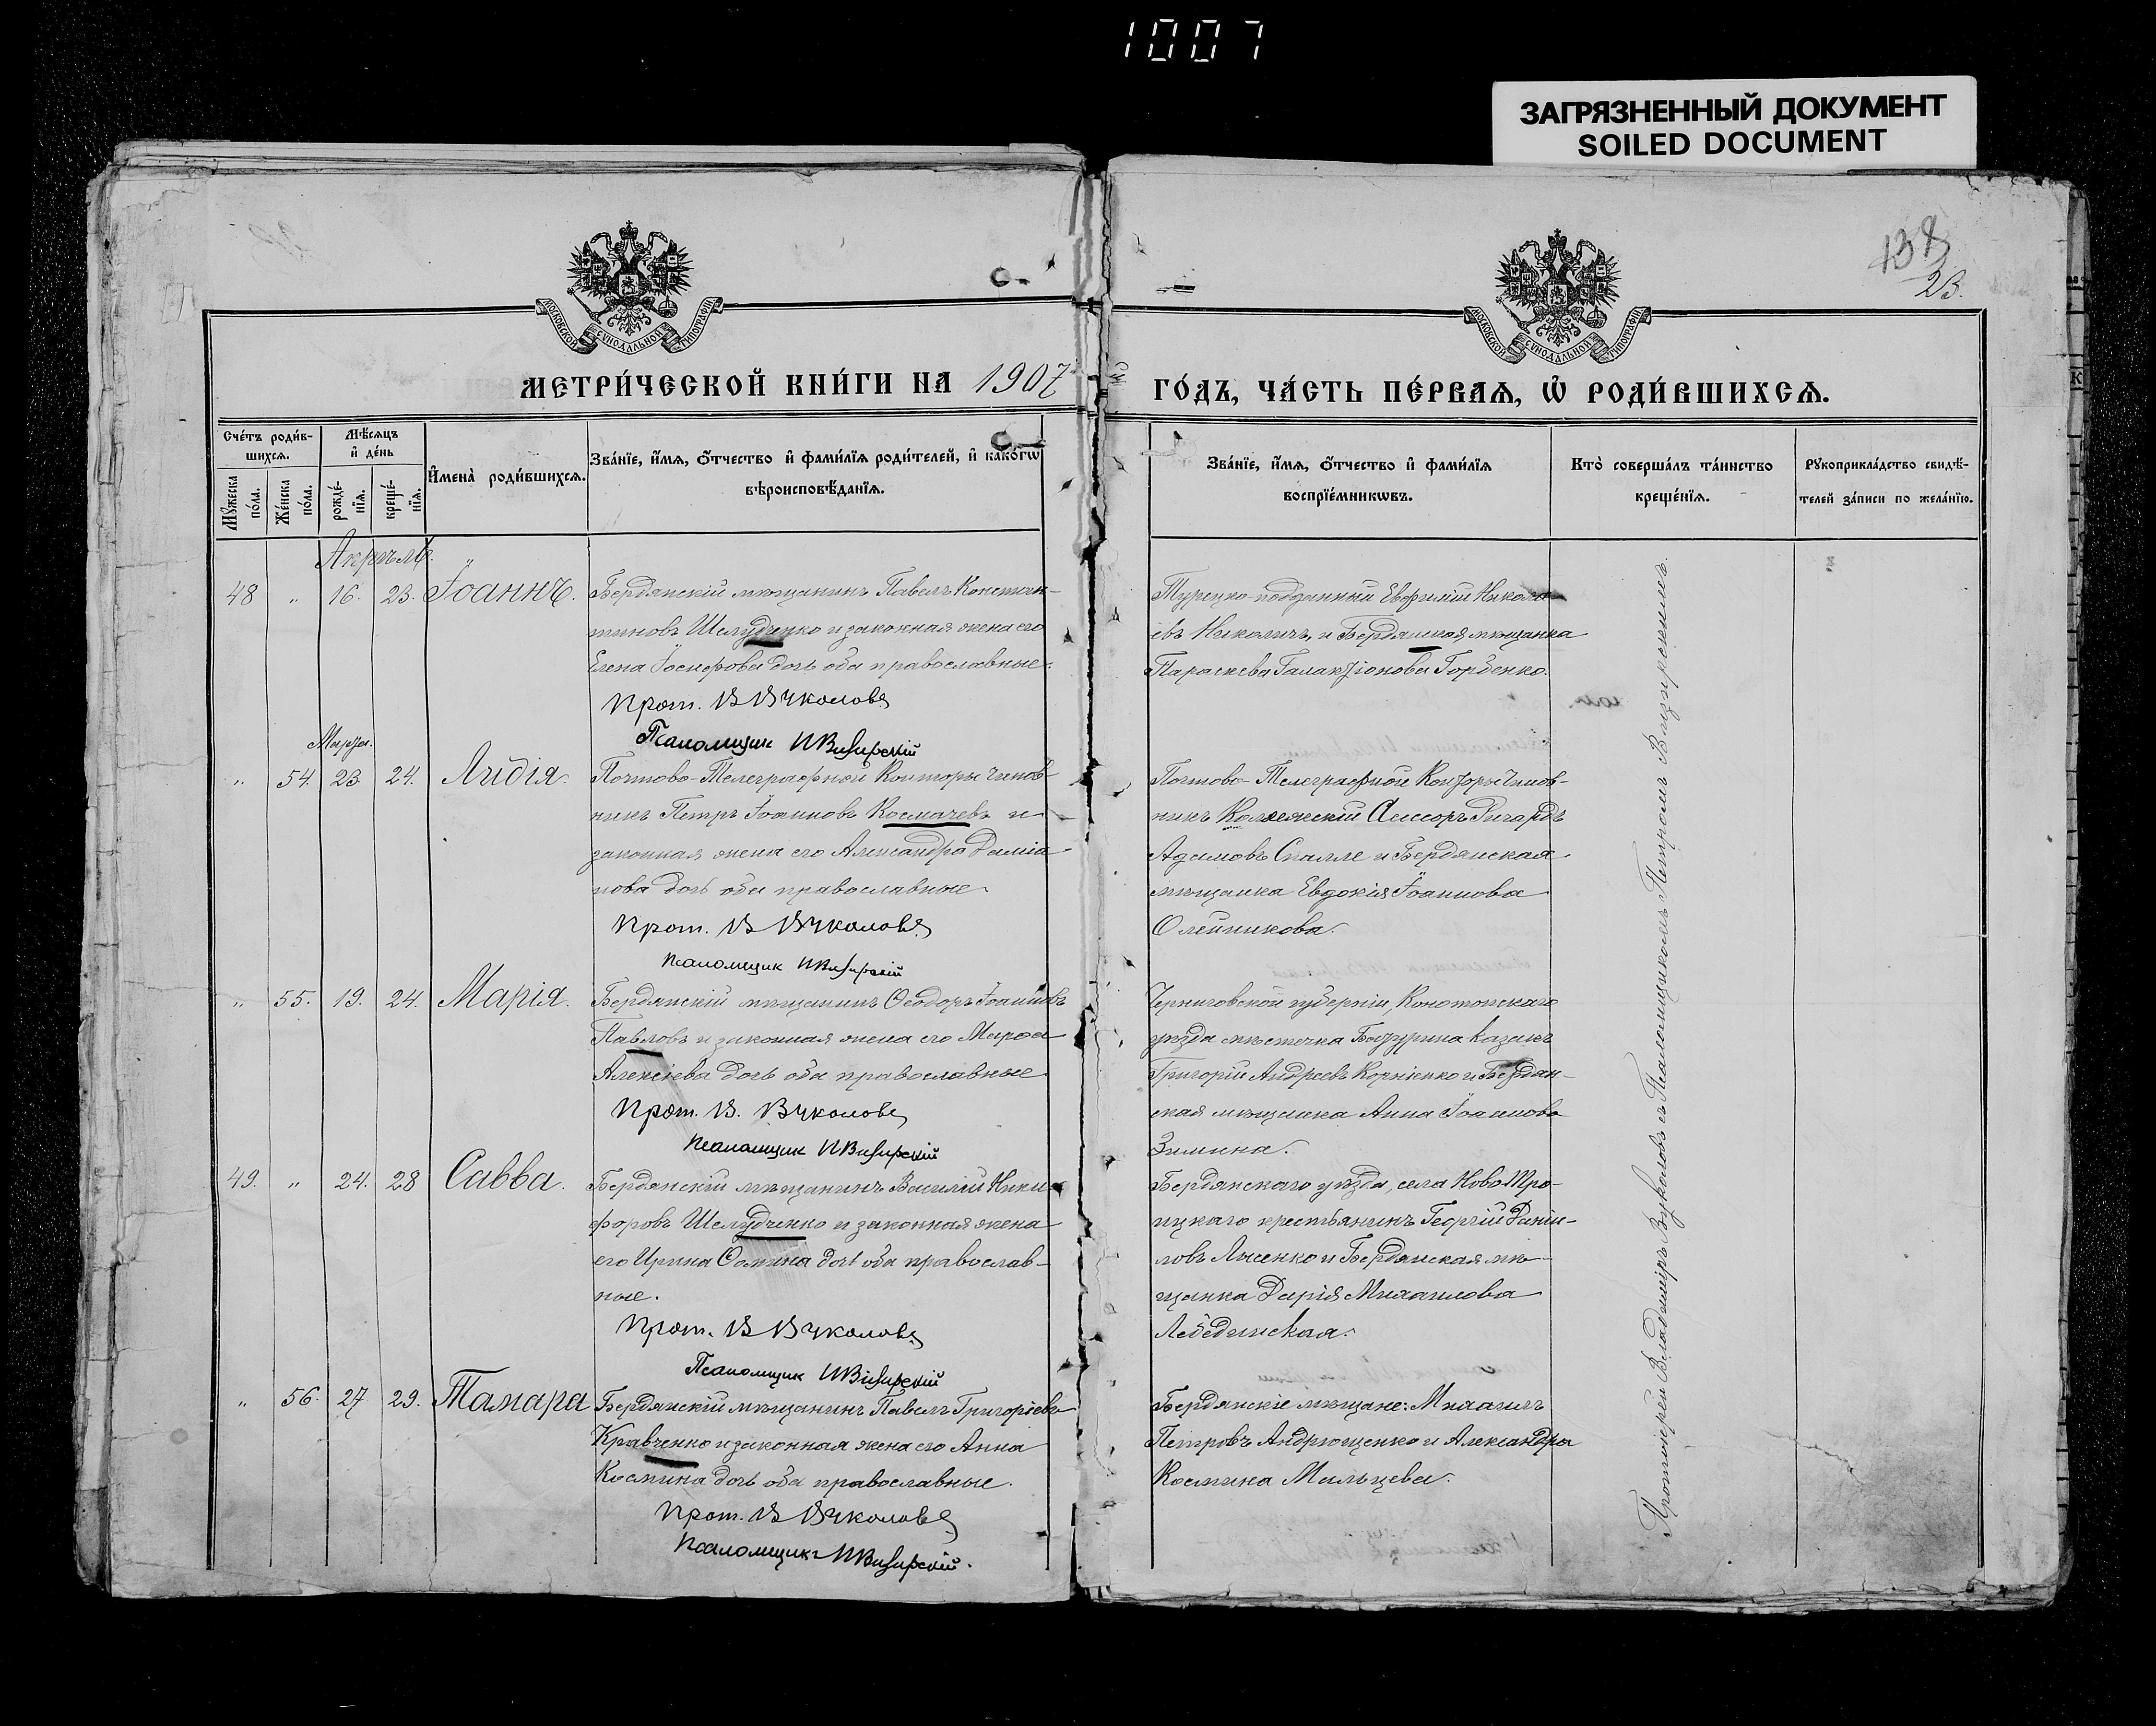 1007
ЗАГРЯЗНЕННЫЙ ДОКУМЕНТ
SOILED DOCUMENT
138
23.
МОСКОВСКОЙ СѴНОДАЛЬНОЙ ТИПОГРАФІИ
МОСКОВСКОЙ СѴНОДАЛЬНОЙ ТИПОГРАФІИ
МЕТРИ́ЧЕСКОЙ КНИ́ГИ НА 1907
ГО́ДЪ, ЧА́СТЬ ПЕ́РВАѦ, Ѡ҆ РОДИ́ВШИХСѦ.
Сче́тъ роди́в-
шихсѧ.
Мѣ́сѧцъ
и҆ де́нь
Мꙋ́жеска по́ла.
Же́нска по́ла.
рожде́-нїѧ.
креще́-нїѧ.
И҆мена̀ роди́вшихсѧ.
Зва́нїе, и҆́мѧ, ѻ҆́тчество и҆ фами́лїѧ роди́телей, и҆ како́гѡ
вѣроисповѣ́данїѧ.
Зва́нїе, и҆́мѧ, ѻ҆́тчество и҆ фами́лїѧ
воспрїе́мникѡвъ.
Кто̀ соверша́лъ та́инство
креще́нїѧ.
Рꙋкоприкла́дство свидѣ́-
телей за́писи по жела́нїю.
Апрѣль.
48 " 16. 23. Іоаннъ.
Бердянскій мѣщанинъ Павелъ Констан-
тиновъ Шелудченко и законная жена его
Елена Іосифова дочь оба православные.
Прот. В Вуколовъ
Псаломщик И Визирскій
Турецко-подданный Евфимій Никола-
евъ Николичъ, и Бердянская мѣщанка
Параскева Галактіонова Горбенко.
Марта.
" 54. 23. 24. Лидія.
Почтово-Телеграфной Конторы чинов-
никъ Петръ Іоанновъ Космачевъ и
законная жена его Александра Даміа-
нова дочь оба православные.
Прот. В Вуколовъ
Псаломщик И Визирскій
Почтово-Телеграфной Конторы чинов-
никъ Коллежскій Ассесоръ Ричардъ
Адамовъ Скалле и Бердянская
мѣщанка Евдокія Іоаннова
Олейникова.
" 55. 19. 24. Марія.
Бердянскій мѣщанинъ Ѳеодоръ Іоанновъ
Павловъ и законная жена его Марѳа
Алексіева дочь оба православные
Прот. В. Вуколовъ
Псаломщик И Визирскій
Черниговской губерніи, Конотопскаго
уѣзда мѣстечка Батурина казакъ
Григорій Андреевъ Корніенко и Бердян-
ская мѣщанка Анна Іоаннова
Зимина.
49. " 24. 28 Савва.
Бердянскій мѣщанинъ Василій Ники-
форовъ Шелудченко и законная жена
его Ирина Ѳомина дочь оба православ-
ные.
Прот. В Вуколовъ
Псаломщик И Визирскій
Бердянскаго уѣзда, села Ново Тро-
ицкаго крестьянинъ Георгій Даніи-
ловъ Лысенко и Бердянская мѣ-
щанка Дарія Михаилова
Лебединская.
" 56. 27 29. Тамара
Бердянскій мѣщанинъ Павелъ Григоріевъ
Кравченко и законная жена его Анна
Космина дочь оба православные.
Прот. В Вуколовъ
Псаломщикъ И Визирскій.
Бердянскіе мѣщане: Михаилъ
Петровъ Андрющенко и Александра
Космина Мальцева.
Протоіерей Владиміръ Вуколовъ съ Псаломщикомъ Петромъ Визирскимъ.